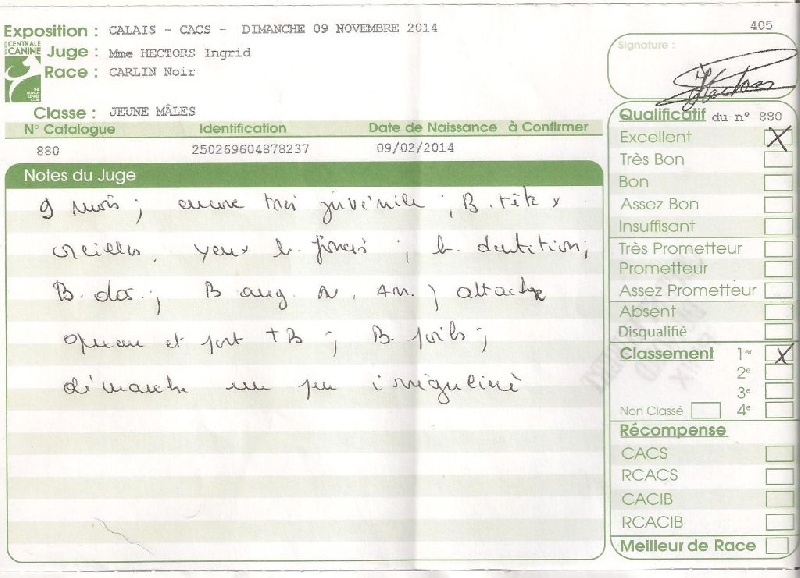 Exposition : CALAIS - CACS - DIMANCHE 09 NOVEMBRE 2014
405
CENTRALE
CANINE
Juge : Mme HECTORS Ingrid
Race : CARLIN Noir
Signature :
Classe : JEUNE MÂLES
N° Catalogue Identification Date de Naissance à Confirmer
880 250269604878237 09/02/2014
Notes du Juge
9 mois ; encore très juvénile ; B. tête x
oreilles, yeux b. foncés ; b. dentition,
B. dos ; B ang. Ar. An. ; attache
queue et port TB ; B. poils ;
démarche un peu
Qualificatif du n° 880
Excellent X
Très Bon
Bon
Assez Bon
Insuffisant
Très Prometteur
Prometteur
Assez Prometteur
Absent
Disqualifié
Classement 1er X
2e
3e
Non Classé 4e
Récompense
CACS
RCACS
CACIB
RCACIB
Meilleur de Race